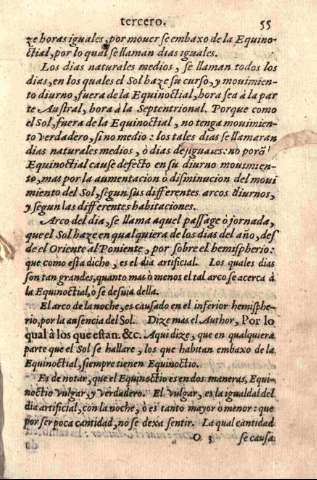 tercero. 55
ze horas iguales, por mouerse embaxo de la Equino-
ctial, por lo qual se llaman dias iguales.
Los dias naturales medios, se llaman todos los
dias, en los quales el Sol haze su curso, y mouimien-
to diurno, fuera de la Equinoctial, hora sea à la par
te Austral, hora à la Septentrional. Porque como
el Sol, fuera de la Equinoctial, no tenga mouimien-
to verdadero, sino medio: los tales dias se llamaran
dias naturales medios, ò dias desiguales: no porq̃
Equinoctial cause defecto en su diurno mouimien-
to, mas por la aumentacion ò diminucion del moui
miento del Sol, segun sus differentes arcos diurnos,
y segun las differentes habitaciones.
Arco del dia, se llama aquel passage ò jornada,
que el Sol haze en qualquiera de los dias del año, des
de el Oriente al Poniente, por sobre el hemispherio:
que como esta dicho, es el dia artificial. Los quales dias
son tan grandes, quanto mas ò menos el tal arco se acerca à
la Equinoctial, ò se desuia della.
El arco de la noche, es causado en el inferior hemisphe-
rio, por la ausencia del Sol. Dize mas el Author, Por lo
qual à los que estan. &c. Aqui dize, que en qualquiera
parte que el Sol se hallare, los que habitan embaxo de la
Equinoctial, siempre tienen Equinoctio.
Es de notar, que el Equinoctio es en dos maneras, Equi-
noctio vulgar, y verdadero. El vulgar, es la igualdad del
dia artificial, con la noche, ò es tanto mayor ò menor: que
por ser poca cantidad, no se dexa sentir. La qual cantidad
O 3 se causa